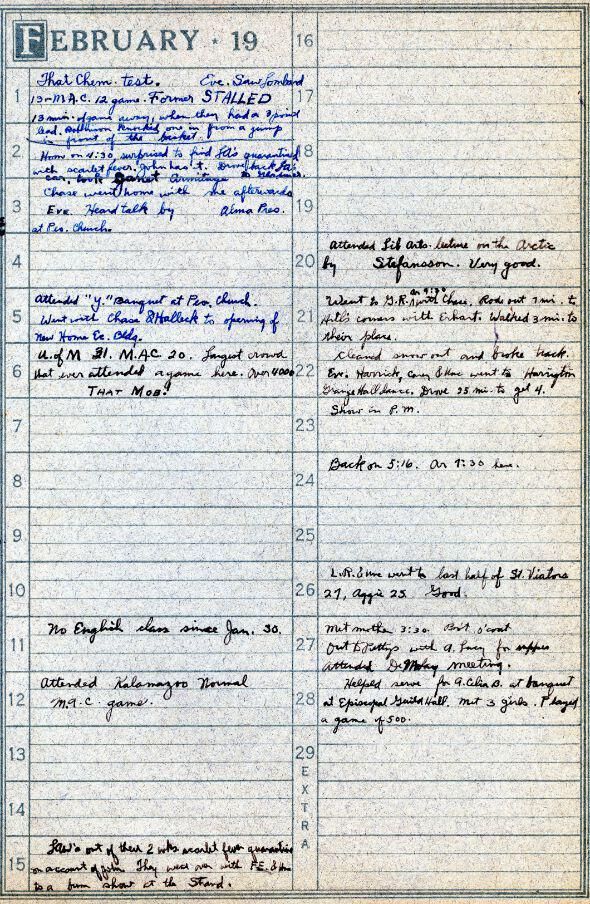 FEBRUARY · 19
1
That Chem. test. Eve. Saw Lombard
13-M.A.C. 12 game. Former STALLED
13 min. of game away, when they had a 3 point
lead. knocked one in from a jump
in front of the basket.
2
Home on 4:30 surprised to find quarantined
with scarlet fever. John has it. Drove back
car, took Janet Armitage to
Chase went home with me afterwards
3
Eve. Heard talk by Alma Pres.
at Peo. Church.
4
5
Attended "Y." Banquet at Peo. Church.
Went with Chase & Halleck to opening of
New Home Ec. Bldg.
6
U. of M 31. M.A.C 20. Largest crowd
that ever attended a game here. Over 4000
THAT MOB!
7
8
9
10
11
No English class since Jan. 30.
12
Attended Kalamazoo Normal
M.A.C. game.
13
14
15
out of their 2 wks scarlet fever quarantine
on account of John They went over with F.E. & me
to a bum show at the Strand.
16
17
18
19
20
Attended Lib Arts. lecture on the Arctic
by Stefansson. Very good.
21
Went to G.R. on 4:30 with Chase. Rode out 7 mi. to
corners with Erhart. Walked 3 mi. to
their place.
22
Cleaned snow out and broke track.
Eve. Harrick, Carey & me went to Harrington
Grange Hall dance. Drove 25 mi. to get 4.
23
Show in P.M.
24
Back on 5:16. Ar 7:30 here.
25
26
L.R. & me went to last half of St. Viators
27, Aggie 25. Good.
27
Met mother 3:30. o'coat
Out to Pettys with A. Lucy for supper
Attended DeMolay meeting.
28
Helped serve for A. Celia B. at banquet
at Episcopal Guild Hall. Met 3 girls. Played
a game of 500.
29
EXTRA